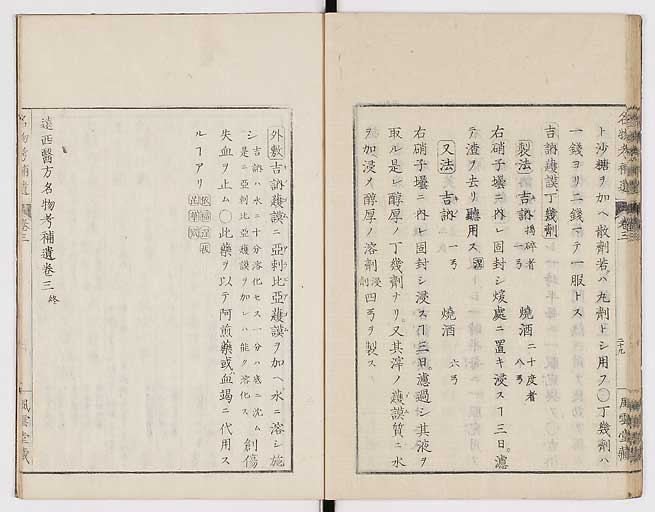 ト沙糖ヲ加ヘ散劑若ハ丸劑トシ用フ〇丁幾劑ハ
一錢ヨリ二錢マテ一服トス
吉訥護謨丁幾劑
製法 吉訥 搗碎者 一ヲ 燒酒 二十度者 八ヲ
右硝子壜ニ內レ固封シ煖處ニ置キ浸スヿ三日。濾
テ渣ヲ去リ聽用ス
又法 吉訥 一ヲ 燒酒 六ヲ
右硝子壜ニ內レ固封シ浸スヿ三日。濾過シ其液ヲ
取ル是レ醇厚ノ丁幾劑ナリ。又其滓ノ護謨質ニ水
ヲ加浸メ醇厚ノ溶劑 浸劑 四ヲヲ製ス
名物考補遺 卷三 二十九 風雲堂藏
外敷吉訥護謨ニ亞剌比亞護謨ヲ加ヘ水ニ溶シ施
シ 吉訥ハ水ニ十分溶化セス一分ハ底ニ沈ム 是ニ亞剌比亞護謨ヲ加レハ能ク溶化ス 創傷
失血ヲ止ム〇此藥ヲ以テ阿煎藥或血竭ニ代用ス
ルヿアリ
遠西醫方名物考補遺卷三終
名物考補遺 卷三 風雲堂藏